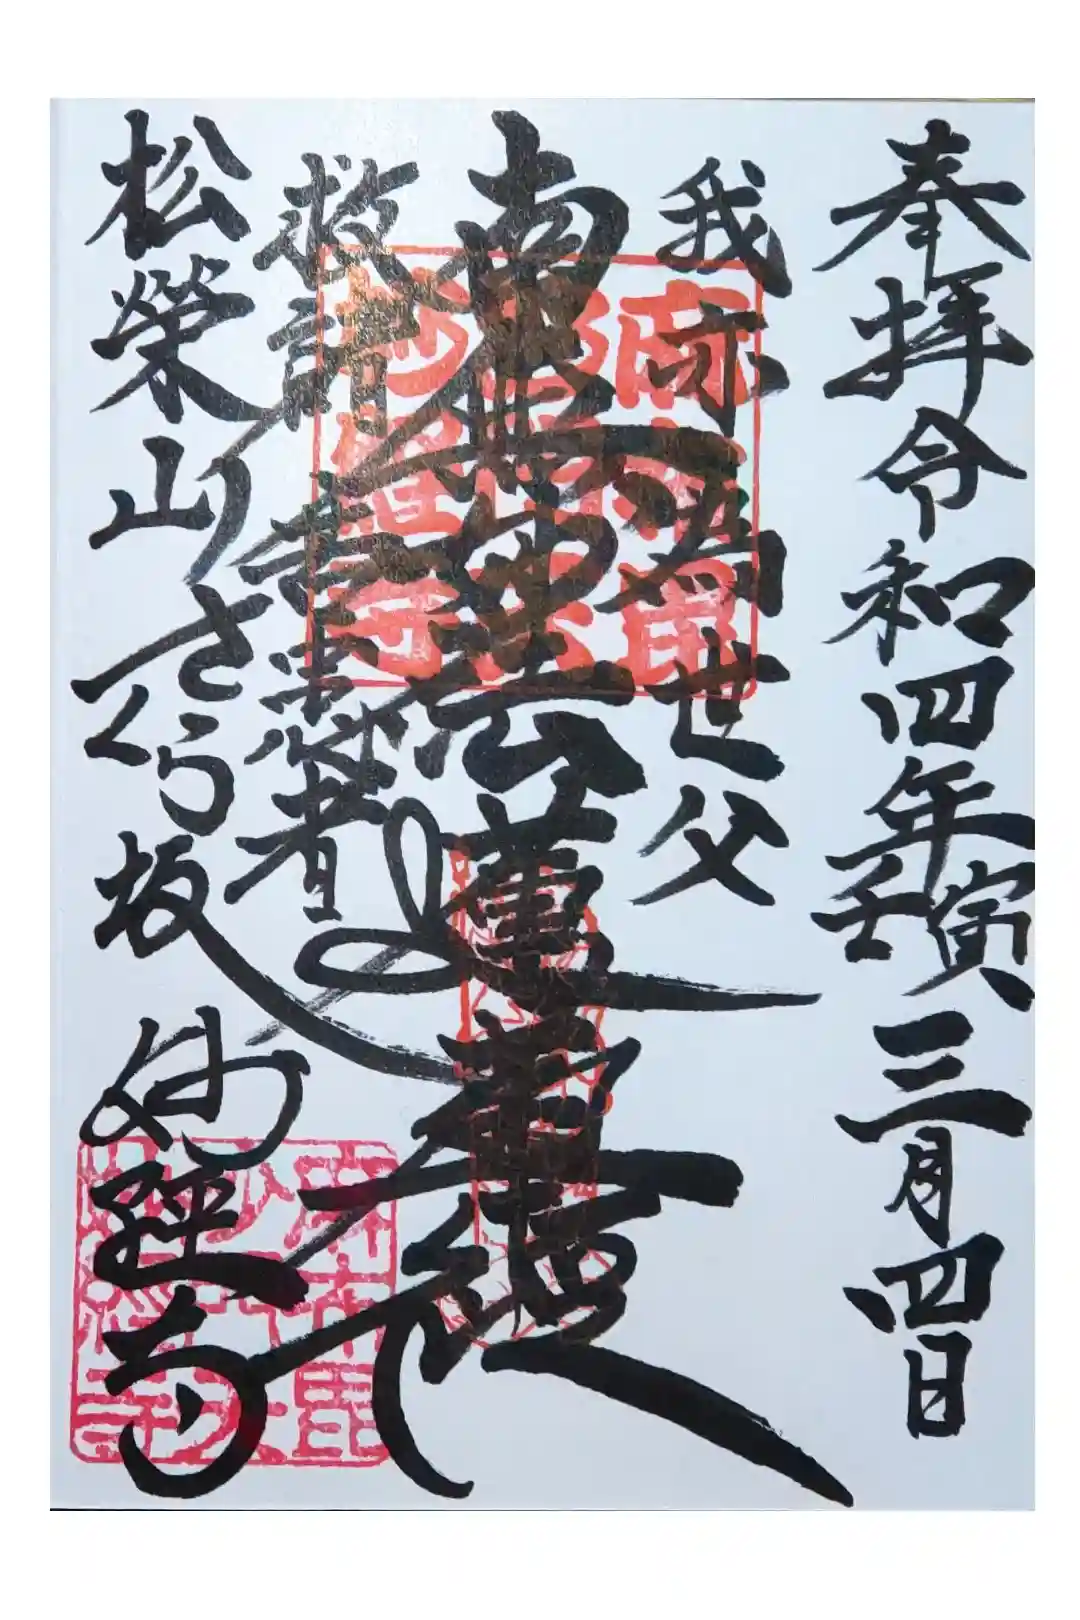 奉拝 令和四年壬寅三月四日
我亦為世父
南無妙法蓮華経
救諸苦患者
松榮山 さくら坂 妙経寺